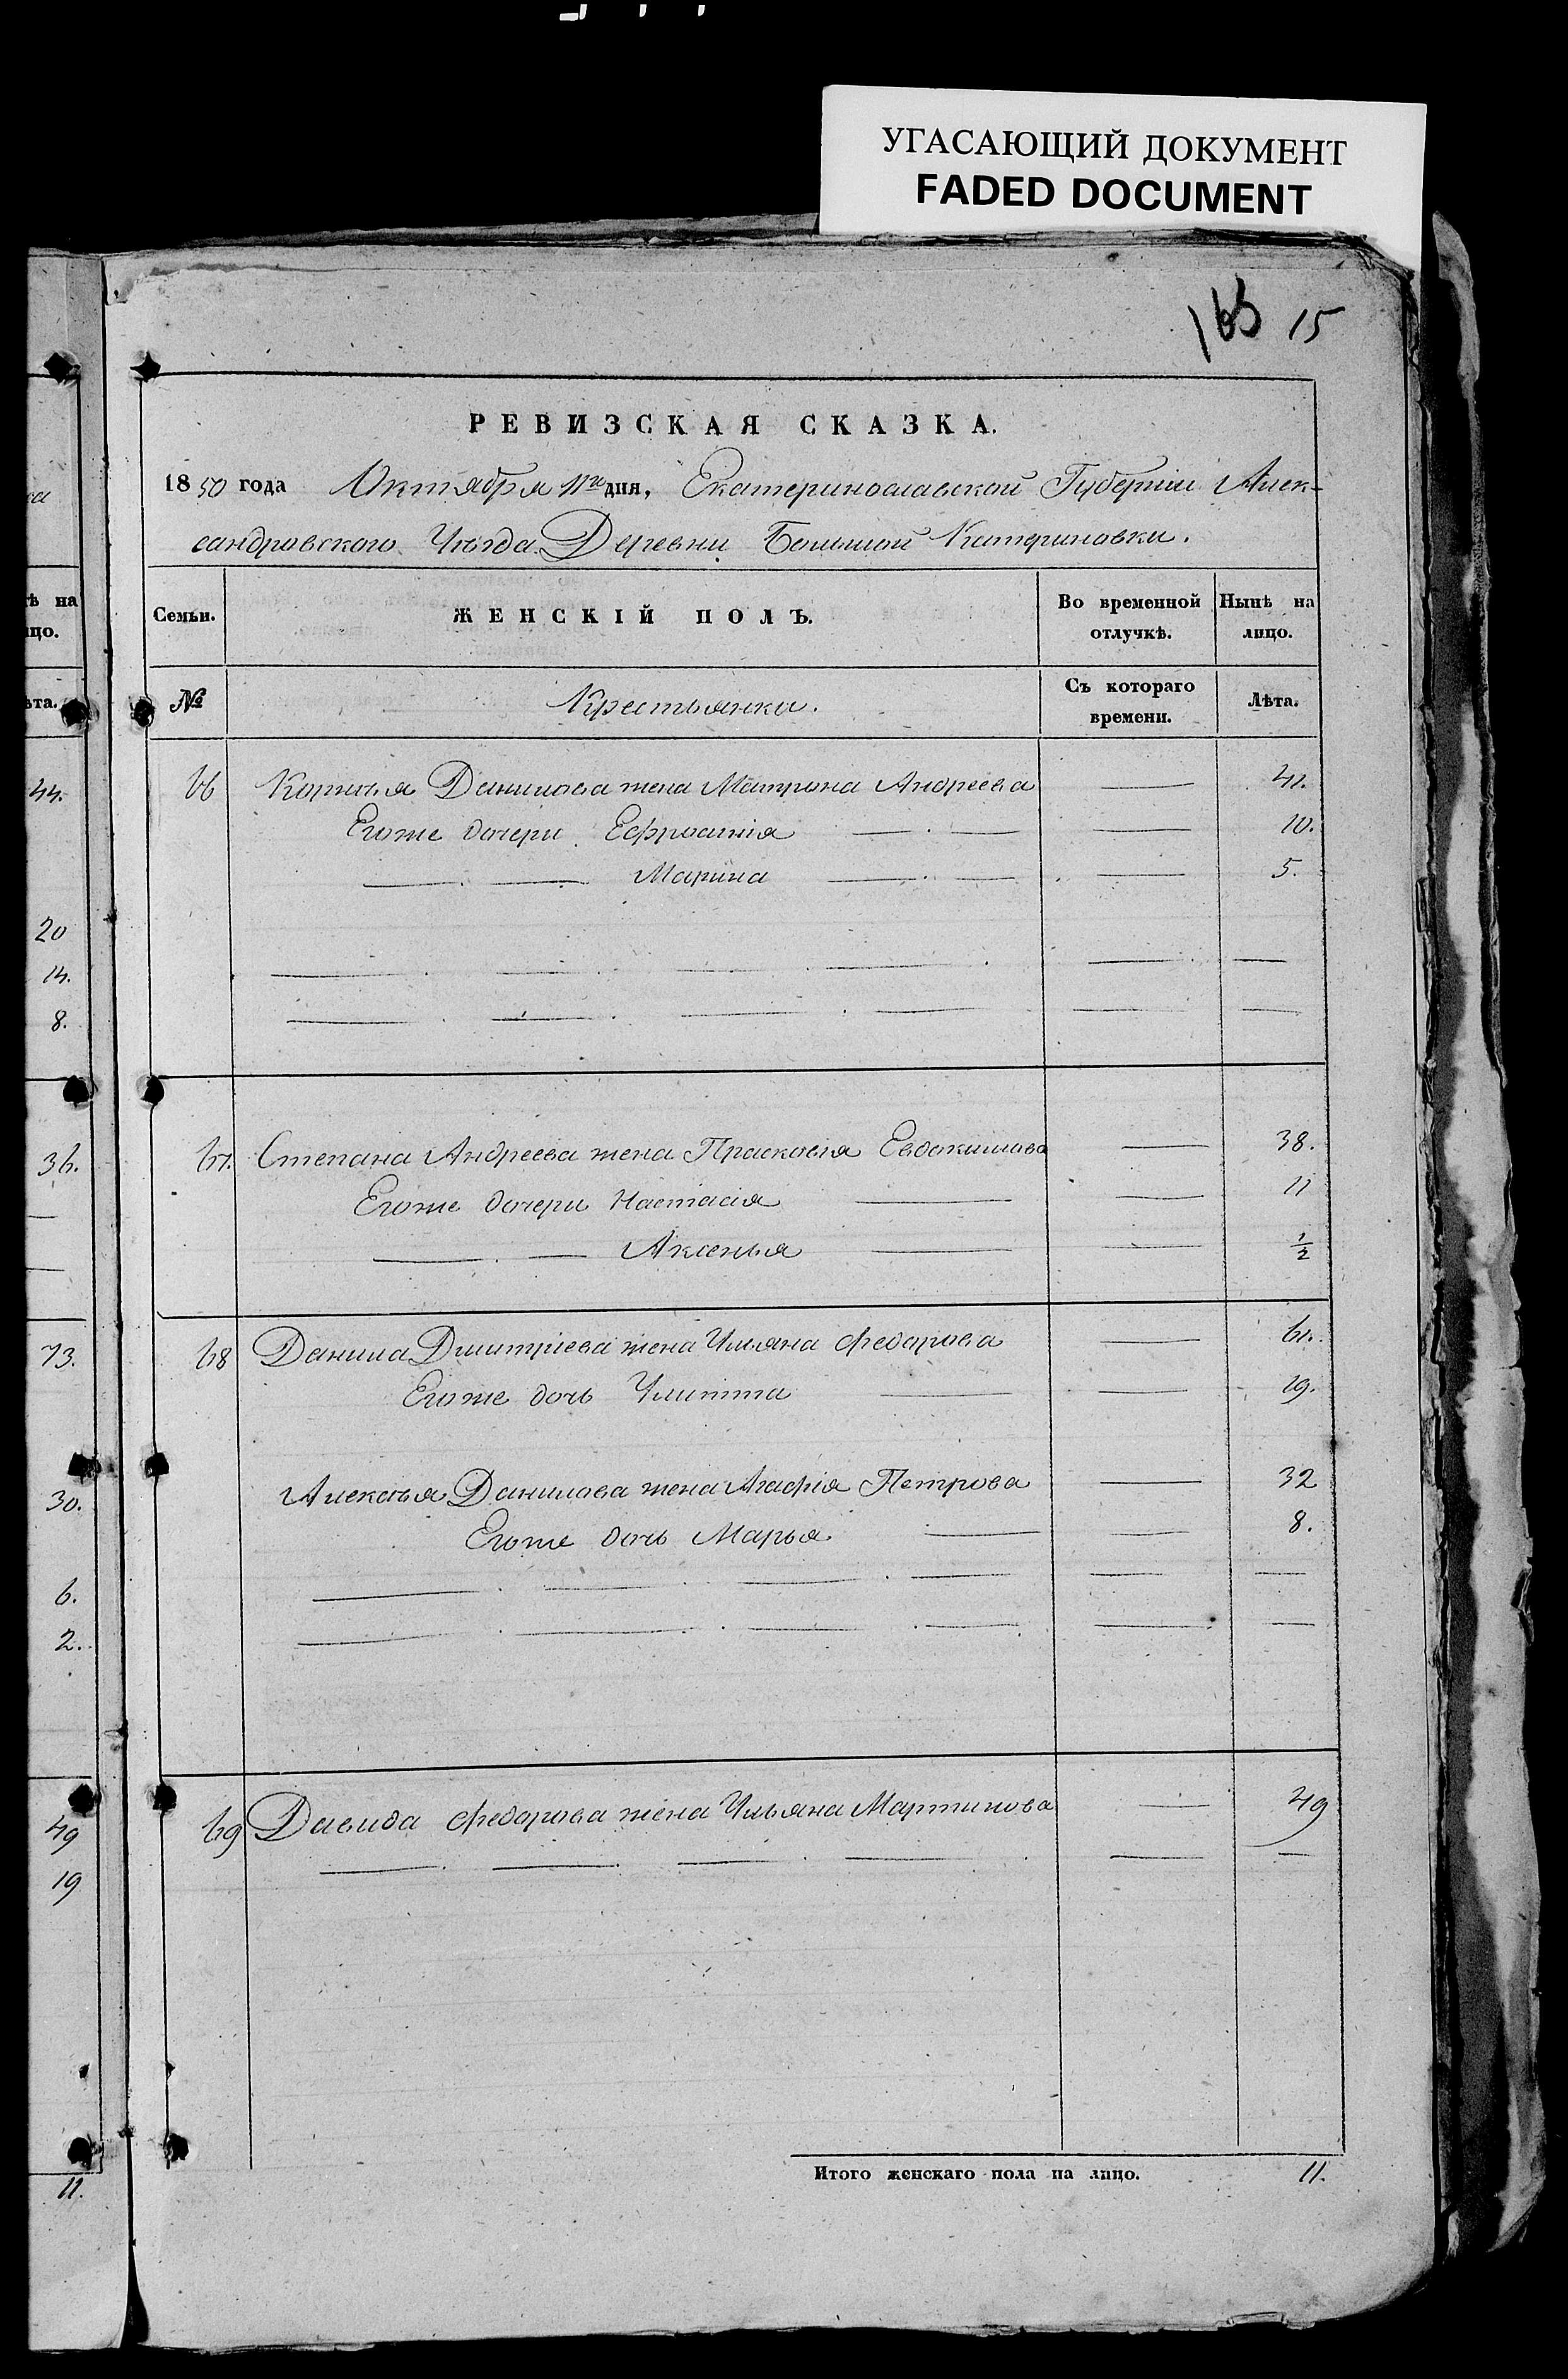 УГАСАЮЩИЙ ДОКУМЕНТ
FADED DOCUMENT
15
РЕВИЗСКАЯ СКАЗКА.
1850 года Октября 11го дня, Екатеринославской Губернiи Алек-
сандровского Уѣзда Деревни Большой Катериновки.
Семьи. ЖЕНСКIЙ ПОЛЪ. Во временной отлучкѣ. Нынѣ на лицо.
№ Крестьянки. Съ котораго времени. Лѣта.
66 Корнѣя Данилова жена Матрона Андреева — 41.
Егоже дочери Ефросинiя — 10.
— Марина — 5.
67. Степана Андреева жена Прасковiя Евдокимова — 38.
Егоже дочери Настасiя — 11
— Аксенья — 1/2
68 Данила Дмитрiева жена Ульяна Федорова — 61.
Егоже дочь Улитта — 19.
Алексѣя Данилова жена Агафiя Петрова — 32
Егоже дочь Марья — 8.
69 Давида Федорова жена Ульяна Мартинова — 49
Итого женскаго пола на лицо. 11.
ѣ на
цо.
ѣта.
44.
20
14.
8.
36.
73.
30.
6.
2.
49
19
11.